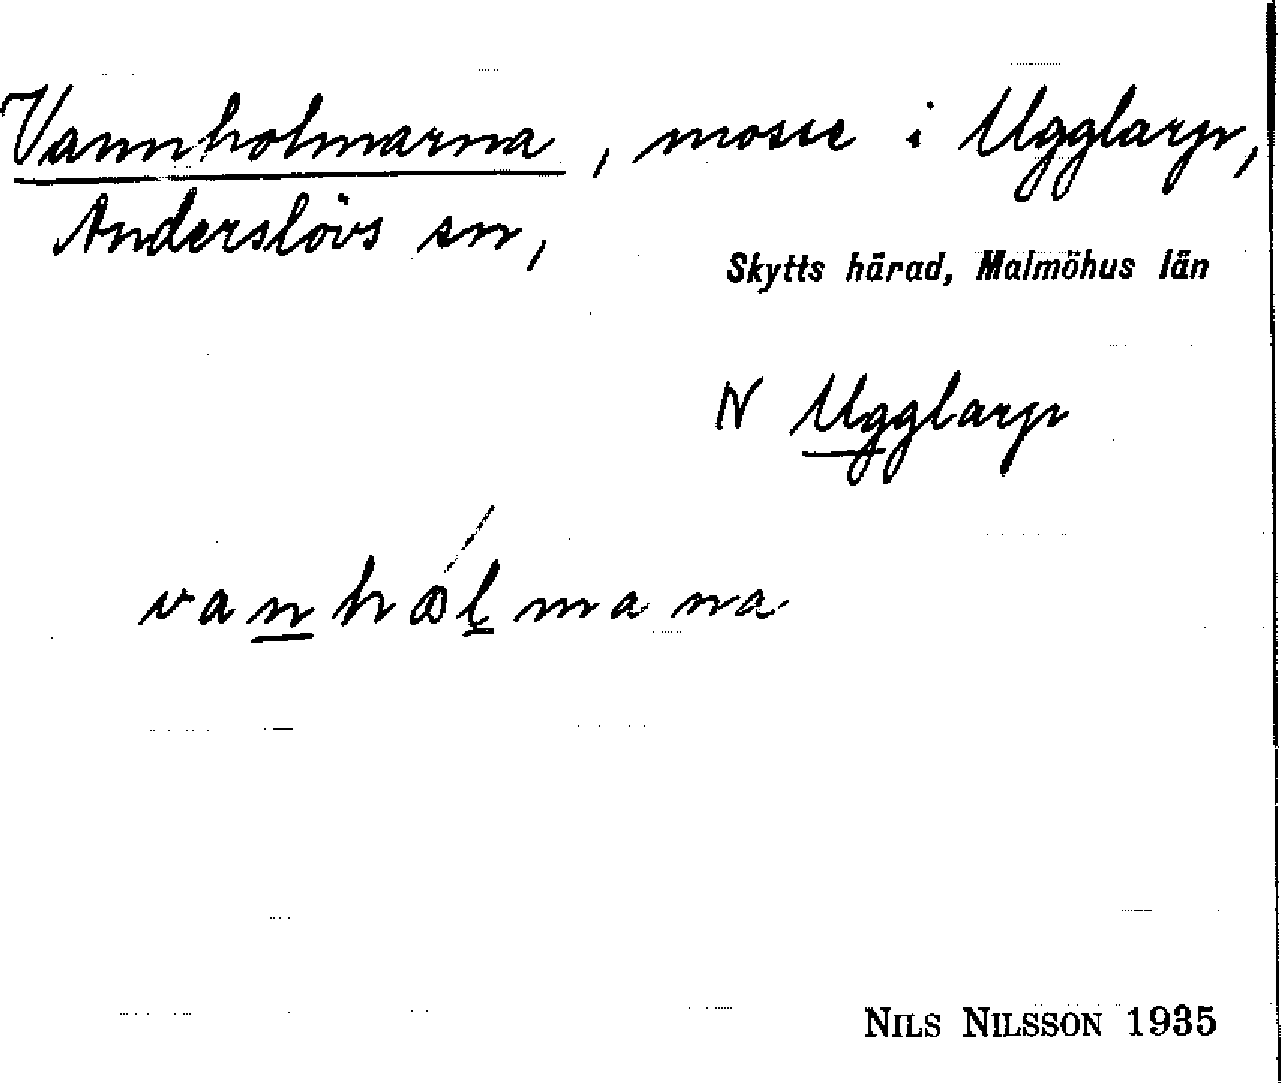 Vannholmarna, mosse i Ugglarp,
Anderslövs sn,
Skytts härad, Malmöhus län
N Ugglarp
vanhålmana
NILS NILSSON 1935